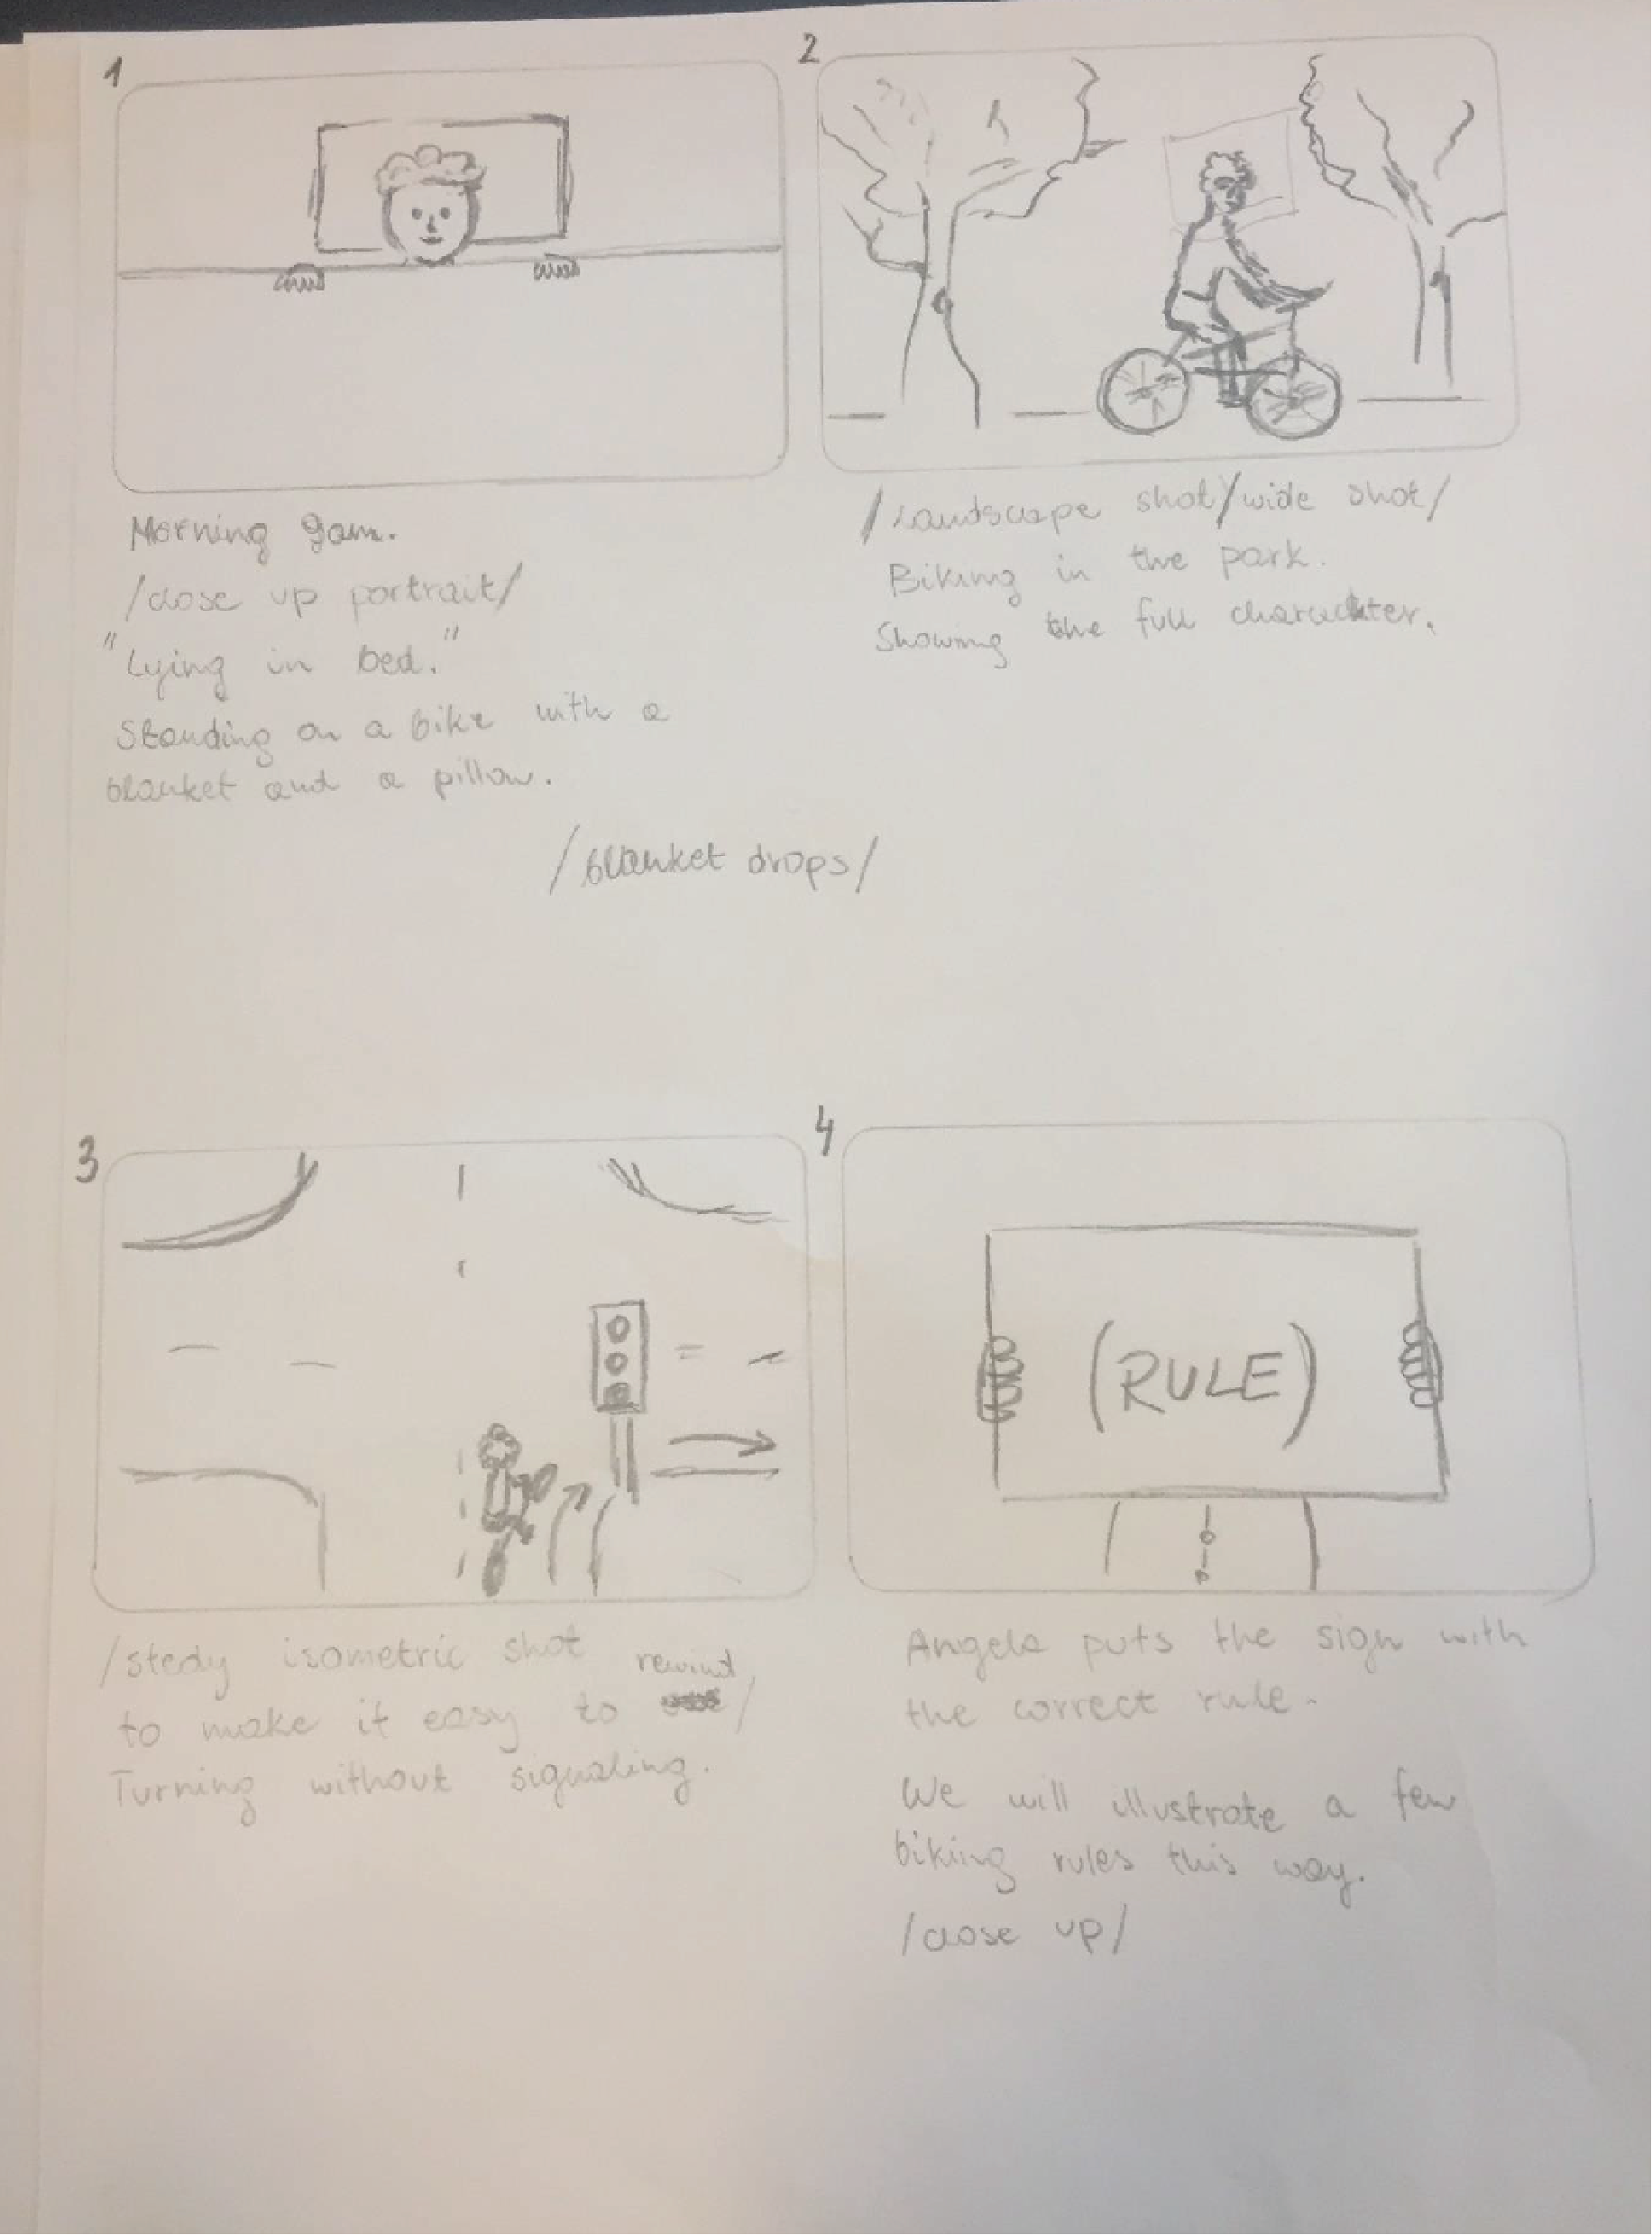 1
Morning 9am.
/close up portrait/
"Lying in bed."
Standing on a bike with a
blanket and a pillow.
2
/Landscape shot/wide shot/
Biking in the park.
Showing the full charackter.
/blanket drops/
3
/stedy isometric shot
to make it easy to rewind/
Turning without signaling.
4
(RULE)
Angela puts the sign with
the correct rule.
We will illustrate a few
biking rules this way.
/close up/